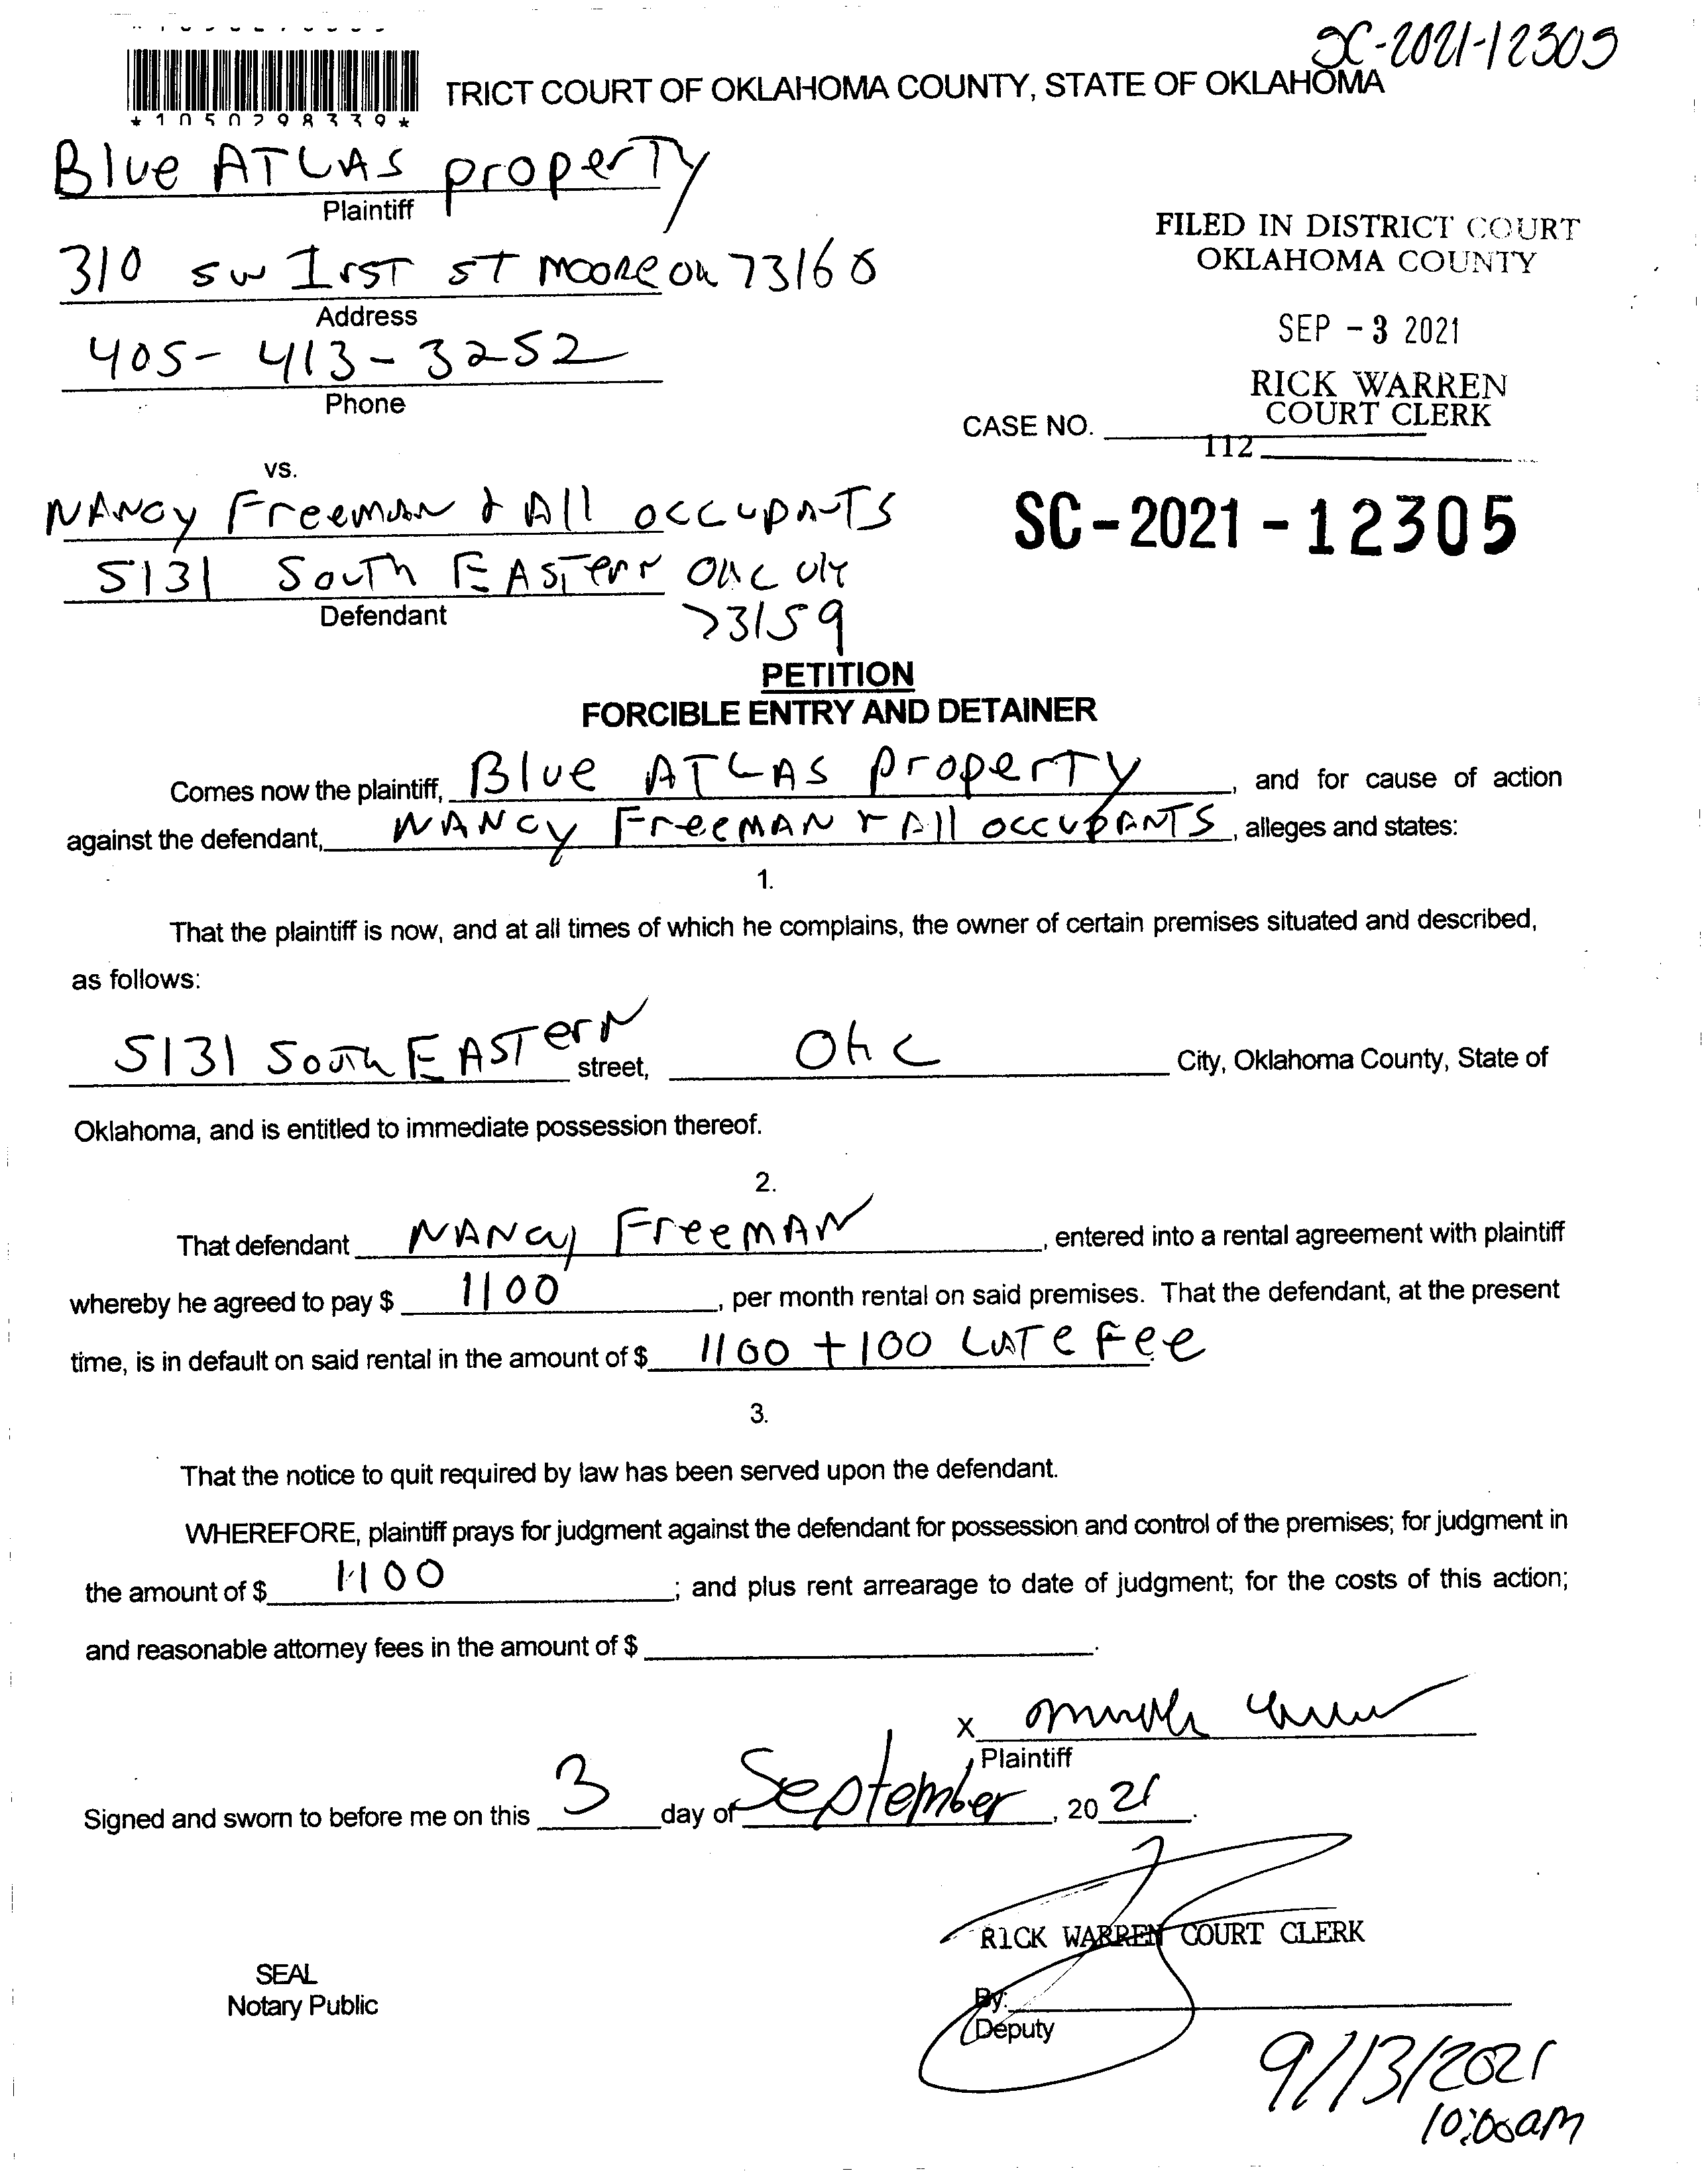 SC-2021-12305
TRICT COURT OF OKLAHOMA COUNTY, STATE OF OKLAHOMA
*1050298339*
Blue ATLAS property
Plaintiff
310 SW 1rst ST MOORE OK 73160
Address
405-413-3252
Phone
FILED IN DISTRICT COURT
OKLAHOMA COUNTY
SEP -3 2021
RICK WARREN
COURT CLERK
CASE NO.
112
vs.
NANCY Freeman & All occupants
5131 South EASTern OKC OK
73159
Defendant
SC-2021-12305
PETITION
FORCIBLE ENTRY AND DETAINER
Comes now the plaintiff, Blue ATLAS property, and for cause of action
against the defendant, NANCY FreeMAN & All occupANTS, alleges and states:
1.
That the plaintiff is now, and at all times of which he complains, the owner of certain premises situated and described,
as follows:
5131 South EASTern street, OKC City, Oklahoma County, State of
Oklahoma, and is entitled to immediate possession thereof.
2.
That defendant NANCY FreeMAN, entered into a rental agreement with plaintiff
whereby he agreed to pay $ 1100, per month rental on said premises. That the defendant, at the present
time, is in default on said rental in the amount of $ 1100 + 100 LATe Fee
3.
That the notice to quit required by law has been served upon the defendant.
WHEREFORE, plaintiff prays for judgment against the defendant for possession and control of the premises; for judgment in
the amount of $ 1100; and plus rent arrearage to date of judgment; for the costs of this action;
and reasonable attorney fees in the amount of $.
X
Plaintiff
Signed and sworn to before me on this 3 day of September, 2021.
RICK WARREN COURT CLERK
SEAL
Notary Public
By:
Deputy
9/13/2021
10:00am